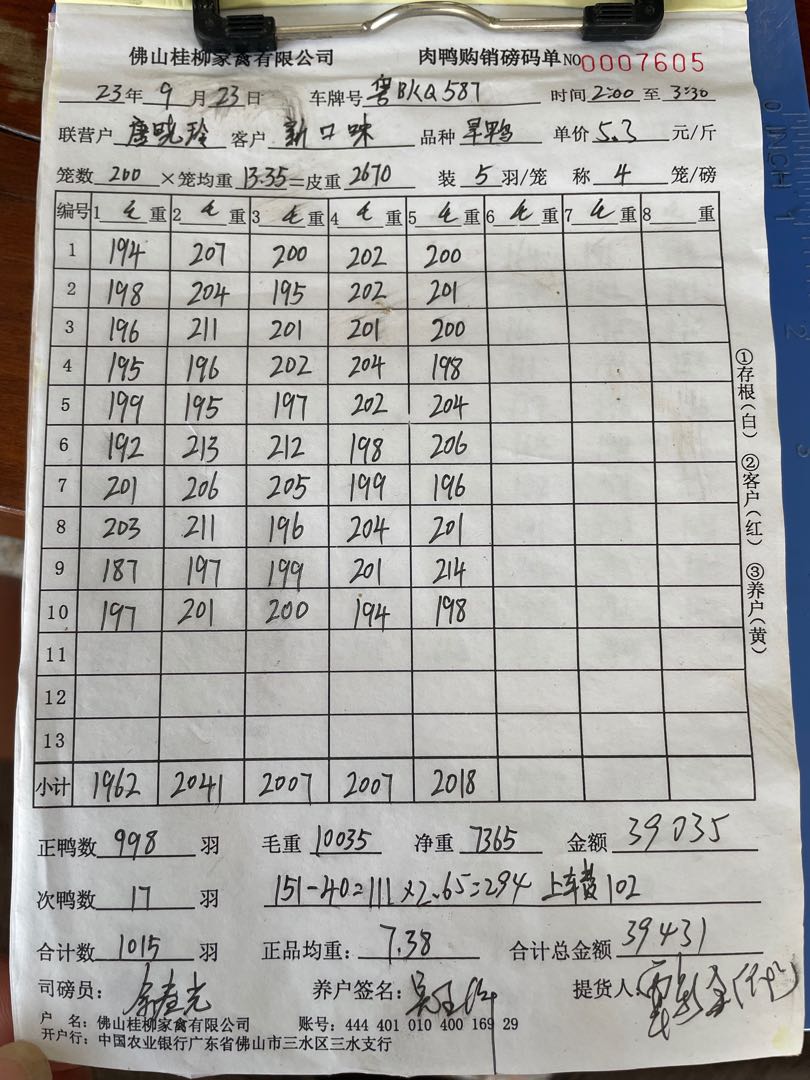 佛山桂柳家禽有限公司 肉鸭购销磅码单 NO0007605
23年 9月 23日 车牌号 粤BKQ587 时间 2:00 至 3:30
联营户 唐晓玲 客户 新口味 品种 旱鸭 单价 5.3 元/斤
笼数 200 ×笼均重 13.35=皮重 2670 装 5 羽/笼 称 4 笼/磅
编号 1 毛重 2 毛重 3 毛重 4 毛重 5 毛重 6 毛重 7 毛重 8 重
1 194 207 200 202 200
2 198 204 195 202 201
3 196 211 201 201 200
4 195 196 202 204 198
5 199 195 197 202 204
6 192 213 212 198 206
7 201 206 205 199 196
8 203 211 196 204 201
9 187 197 199 201 214
10 197 201 200 194 198
11
12
13
小计 1962 2041 2007 2007 2018
正鸭数 998 羽 毛重 10035 净重 7365 金额 39035
次鸭数 17 羽 151-40=111×2.65=294 上车费102
合计数 1015 羽 正品均重: 7.38 合计总金额 39431
司磅员: 养户签名: 提货人
户 名: 佛山桂柳家禽有限公司 账号: 444 401 010 400 169 29
开户行: 中国农业银行广东省佛山市三水区三水支行
①存根(白) ②客户(红) ③养户(黄)
0 INCH 1 2